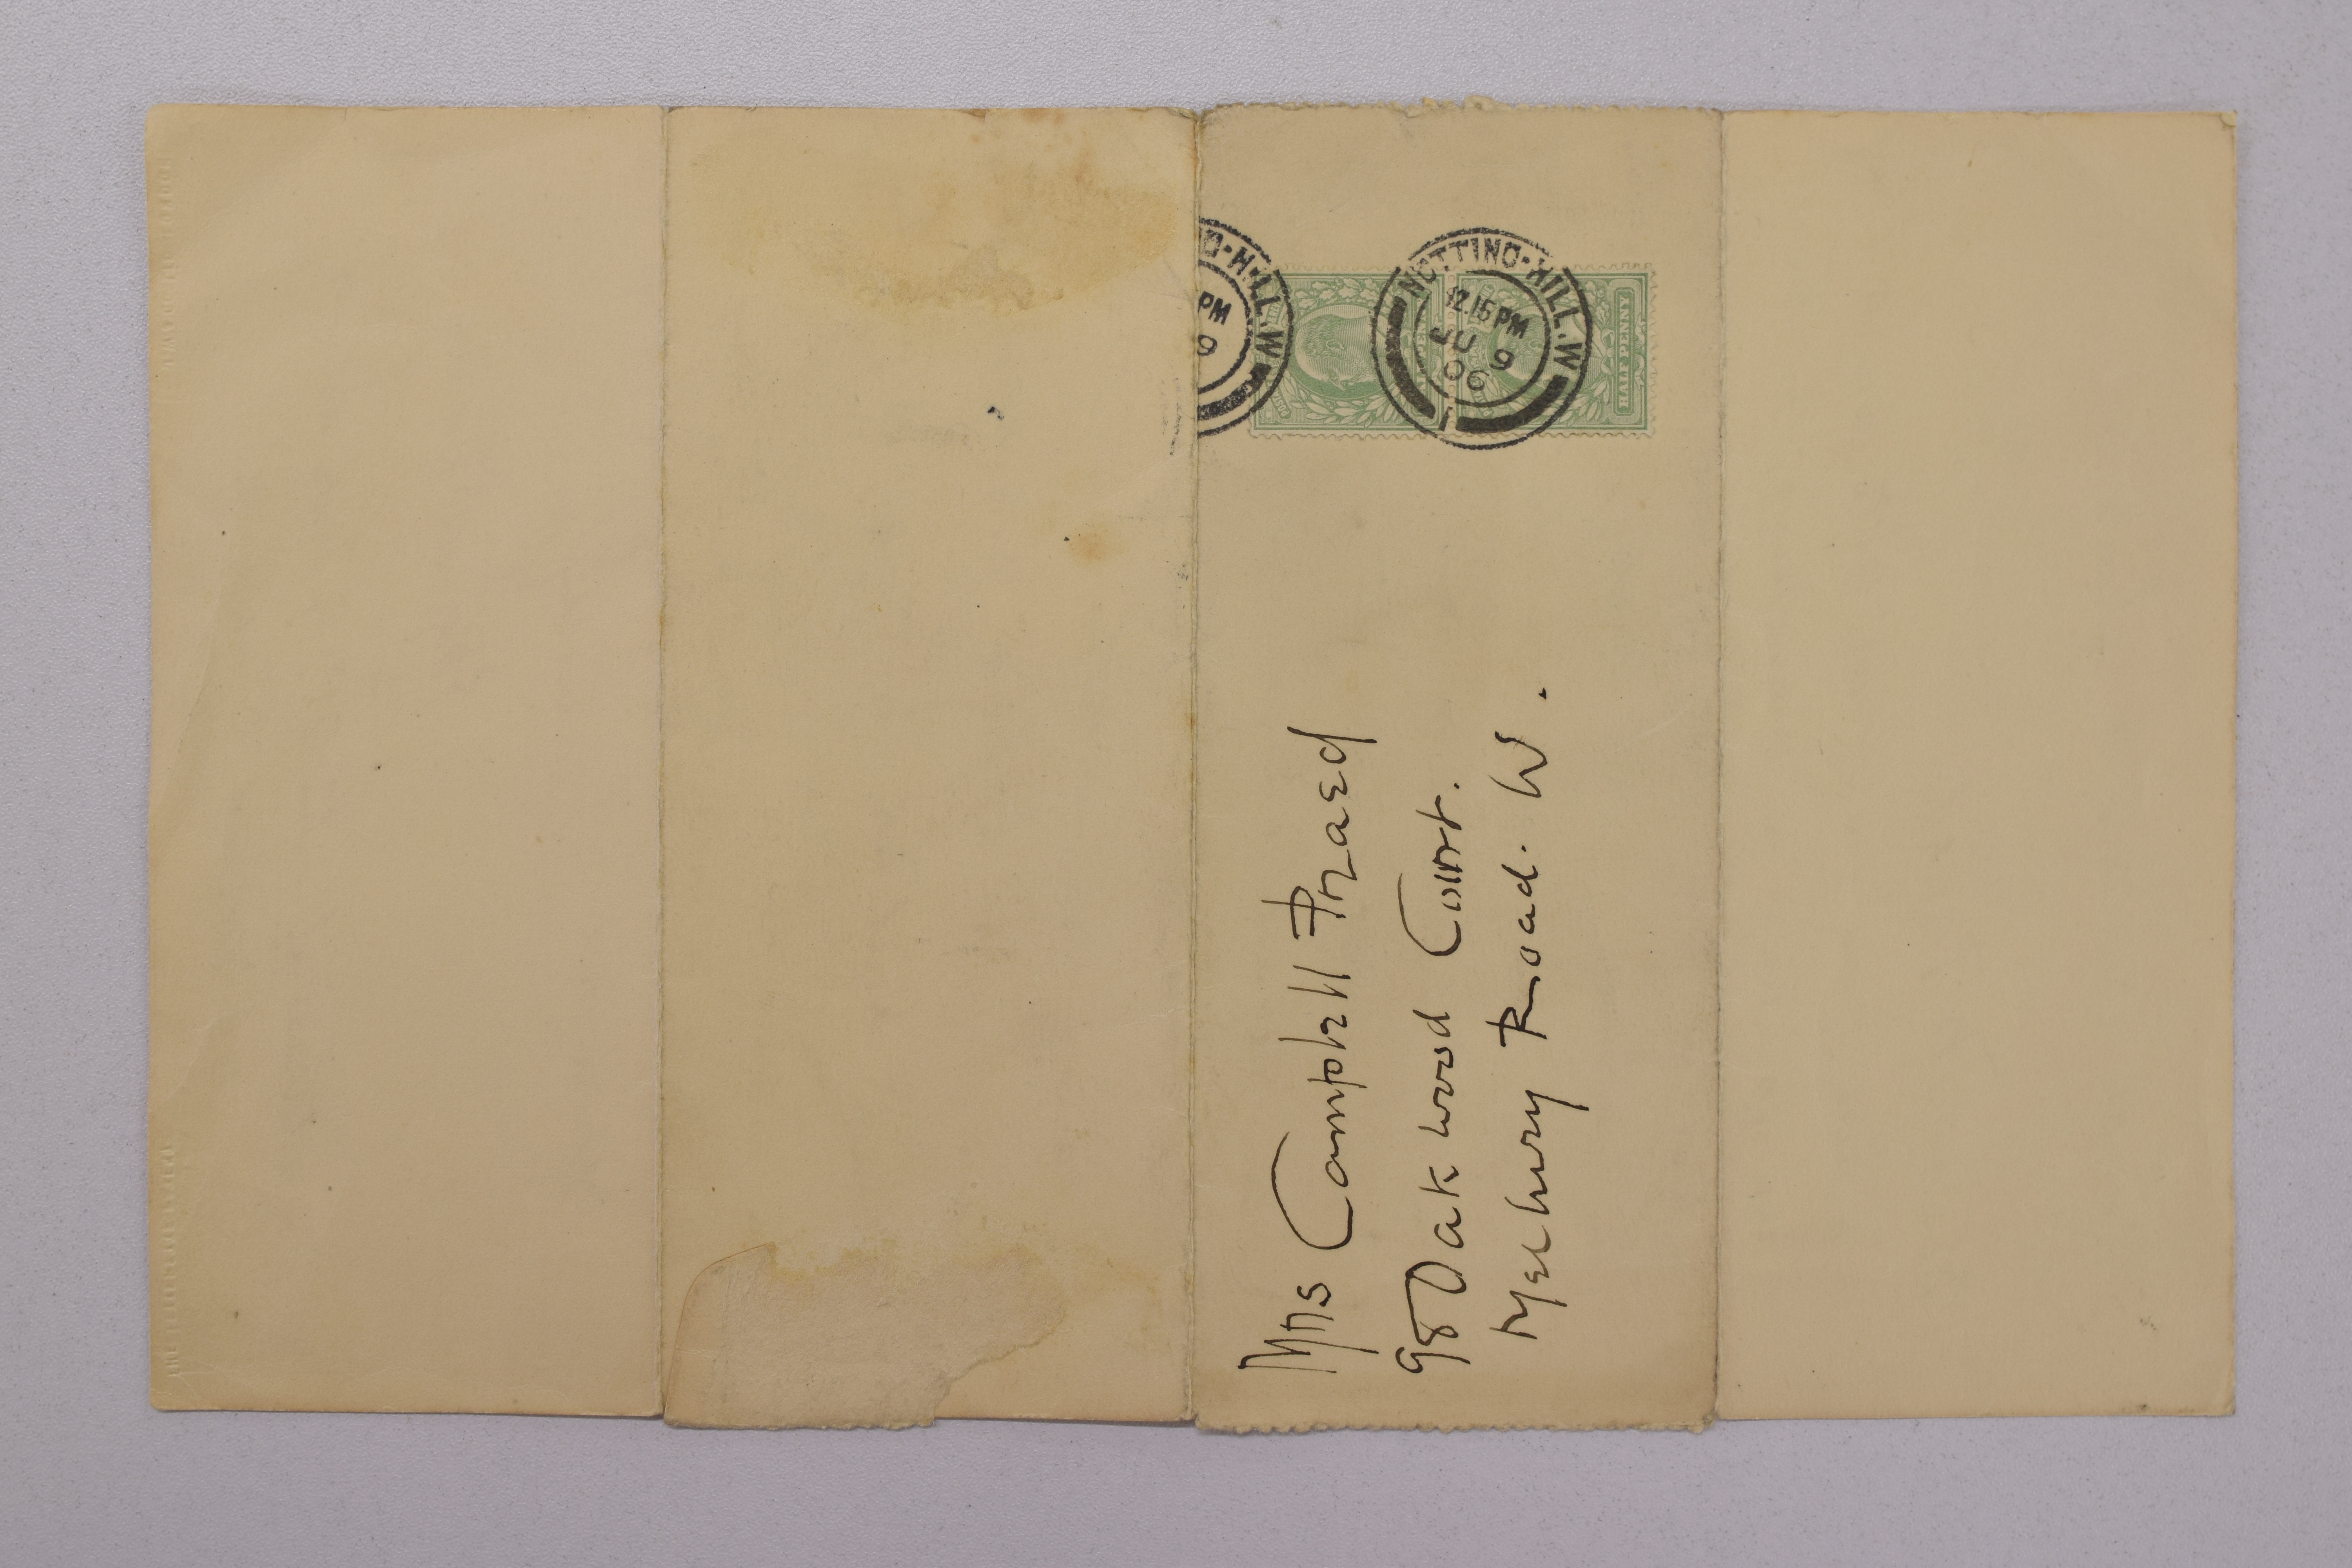 NOTTING-HILL.W
12.15 PM
JU 9
06
1
G-HILL.W
PM
9
HALF PENNY
Mrs Campbell Praed
98 Oakwood Court.
Melbury Road. W.